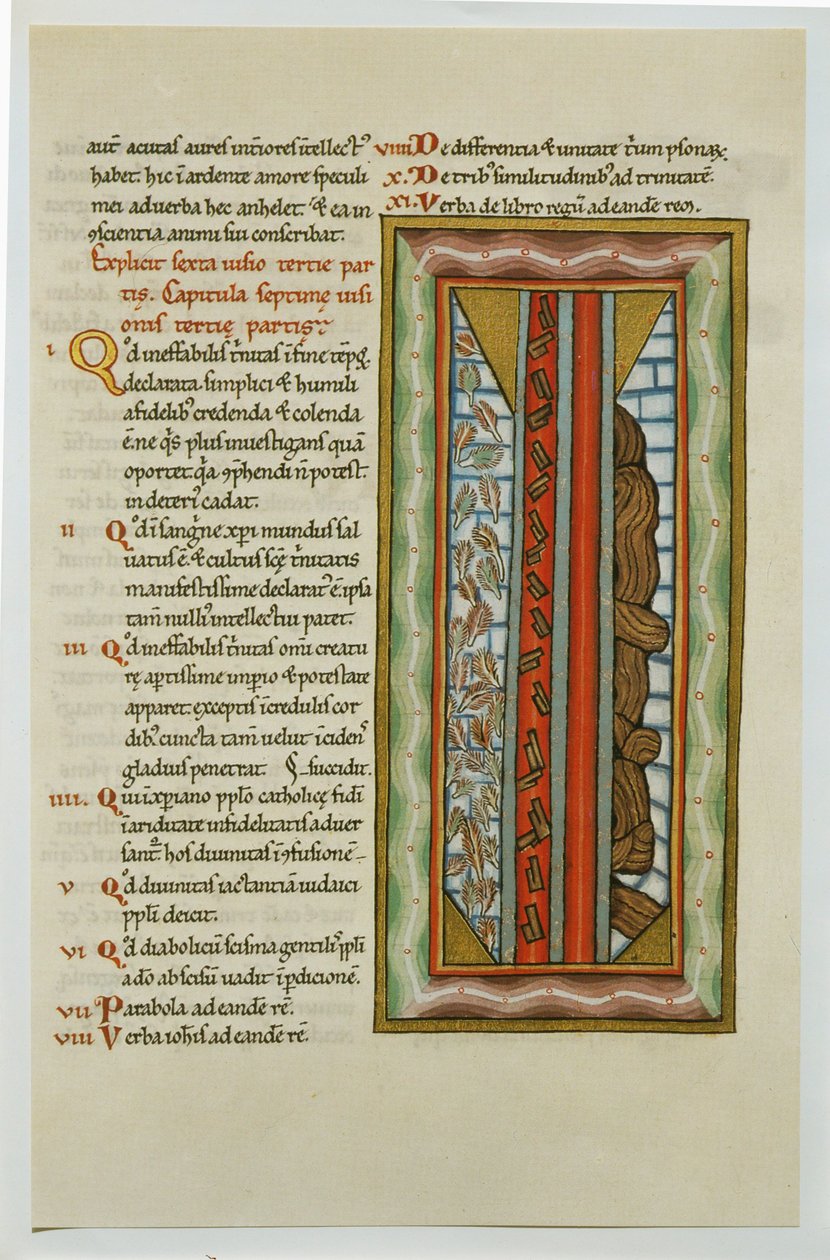 aut̄ acutas aures int̄iores ītellect᷒
habet. hic ī ardente amore speculi
mei ad verba hec anhelet. & ea in
ꝯscientia animi sui conscribat.
Explicit sexta uisio tertie par
tis. Capitula septimę uisi
onis tertię partis.
i Qͦd ineffabilis t̄nitas ī fine tēpꝝ
declarata simplici & humili
a fidelib᷒ credenda & colenda
ē. ne q̇s plus inuestigans quā
oportet. q̇a ꝯp̄hendi n̄ potest.
in deteri᷒ cadat.
ii Qͦd ī sangͥne xp̄i mundus sal
uatus ē. & cultus scę̄ t̄nitatis
manifestissime declarat᷒ ē. ipsa
tam̄ nulli᷒ intellectui patet.
iii Qͦd ineffabilis t̄nitas om̄i creatu
rę aꝑtissime īꝑio & potestate
apparet. exceptis īcredulis cor
dib᷒ cuncta tam̄ uelut īciden᷒
gladius penetrat. succidit.
iiii. Qui ī xp̄iano ppl̄o catholicę fidī
ī ariditate infidelitatis aduer
sant᷒. hos diuinitas ī ꝯfusionē
v Qͦd diuinitas iactantiā iudaici
ppl̄i deicit.
vi Qͦd diabolicū scisma gentil᷒ ppl̄i
a dō abscisum uadit ī ꝑdicionē.
vii Parabola ad eandē rē.
viii Verba ioh̄is ad eandē rē.
viiii De differentia & unitate t̄um ꝑsonaꝝ
x. De trib᷒ similitudinib᷒ ad trinitatē.
xi. Verba de libro regū ad eandē rem.